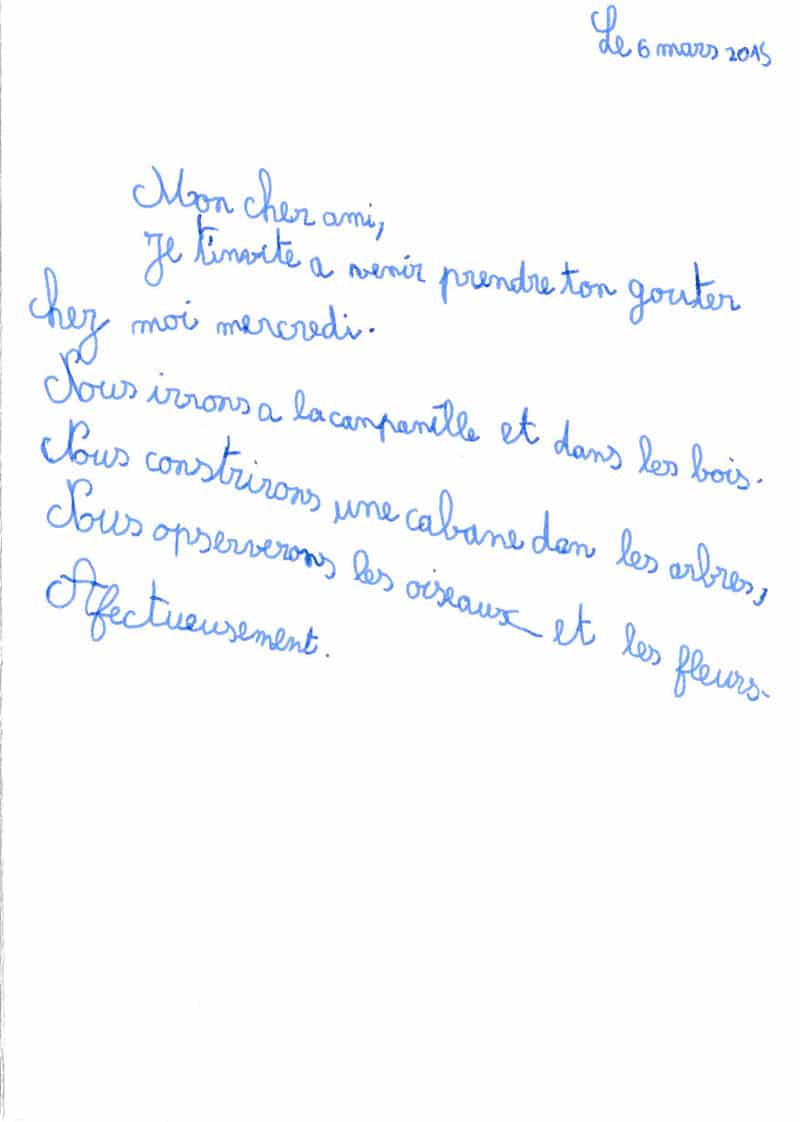 Le 6 mars 2015
Mon cher ami,
Je t'invite a venir prendre ton gouter
chez moi mercredi.
Nous irrons a la canpanille et dans les bois.
Nous constrirons une cabane dan les arbres,
Nous opserverons les oiseaux et les fleurs.
Afectueusement.